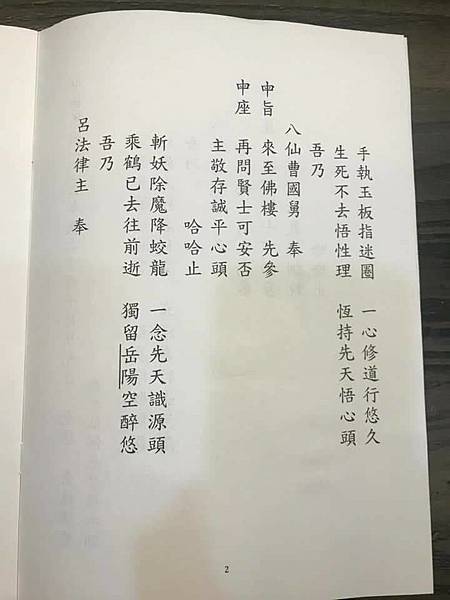 手執玉板指迷圈　一心修道行悠久
生死不去悟性理　恆持先天悟心頭
吾乃
八仙曹國舅　奉
申旨　來至佛樓　先參
申座　再問賢士可安否
主敬存誠平心頭
哈哈止
斬妖除魔降蛟龍　一念先天識源頭
乘鶴已去往前逝　獨留岳陽空醉悠
吾乃
呂法律主　奉
2